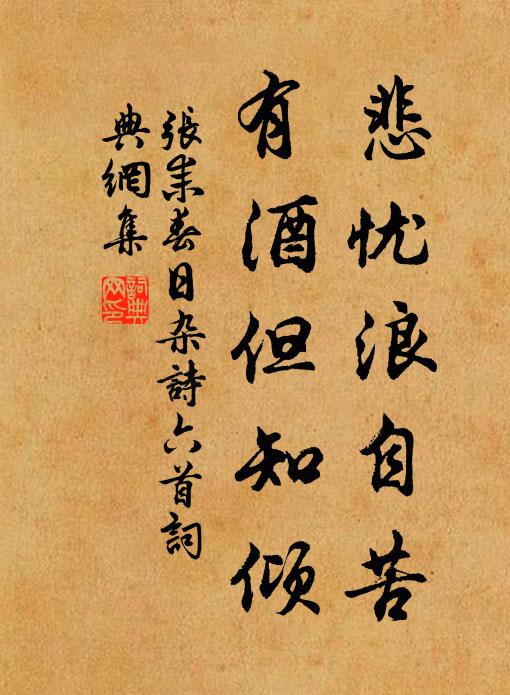 悲忧浪自苦
有酒但知倾
張耒春日杂詩六首詞
典網集
詞典
网印